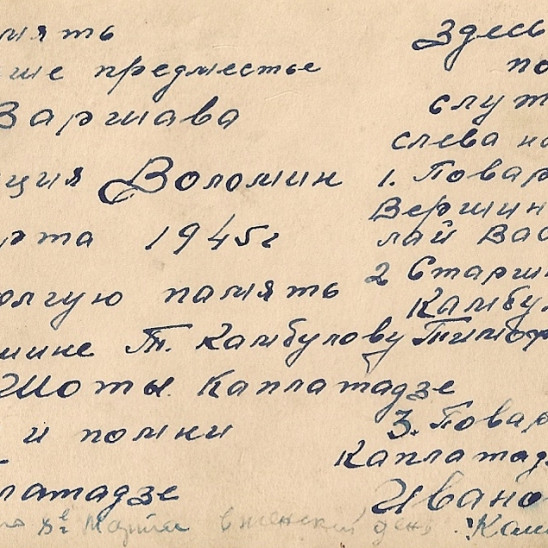 мять
ше предместье
Варшава
ция Воломин
рта 1945г
олгую память
шине Т. Камбулову
Шоты Каплатадзе
и помни
платадзе
8е Марта в женский день
Здесь
по
служ
слева на
1. Повар
Вершин
лай Вас
2 Старши
Камбул
Тимоф
3. Повар
Каплатад
Ивано